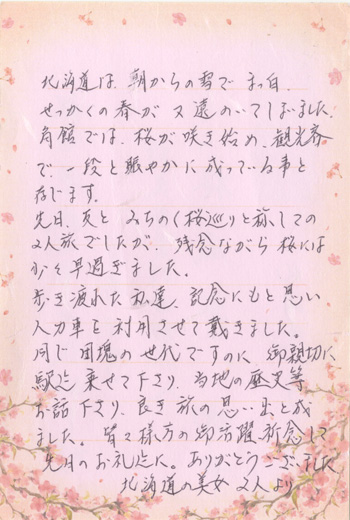 北海道は、朝からの雪でまっ白、
せっかくの春が又遠のいてしまいました。
角館では、桜が咲き始め、観光客
で、一段と賑やかに成っている事と
存じます。
先日、友とみちのく桜巡りと称しての
2人旅でしたが、残念ながら桜には
少々早過ぎました。
歩き疲れた私達、記念にもと思い
人力車を利用させて戴きました。
同じ団塊の世代ですのに、御親切に
駅迄乗せて下さり、当地の歴史等
お話下さり、良き旅の思い出と成り
ました。皆々様方の御活躍祈念して
先日のお礼迄に。ありがとうございました
北海道の美女2人より